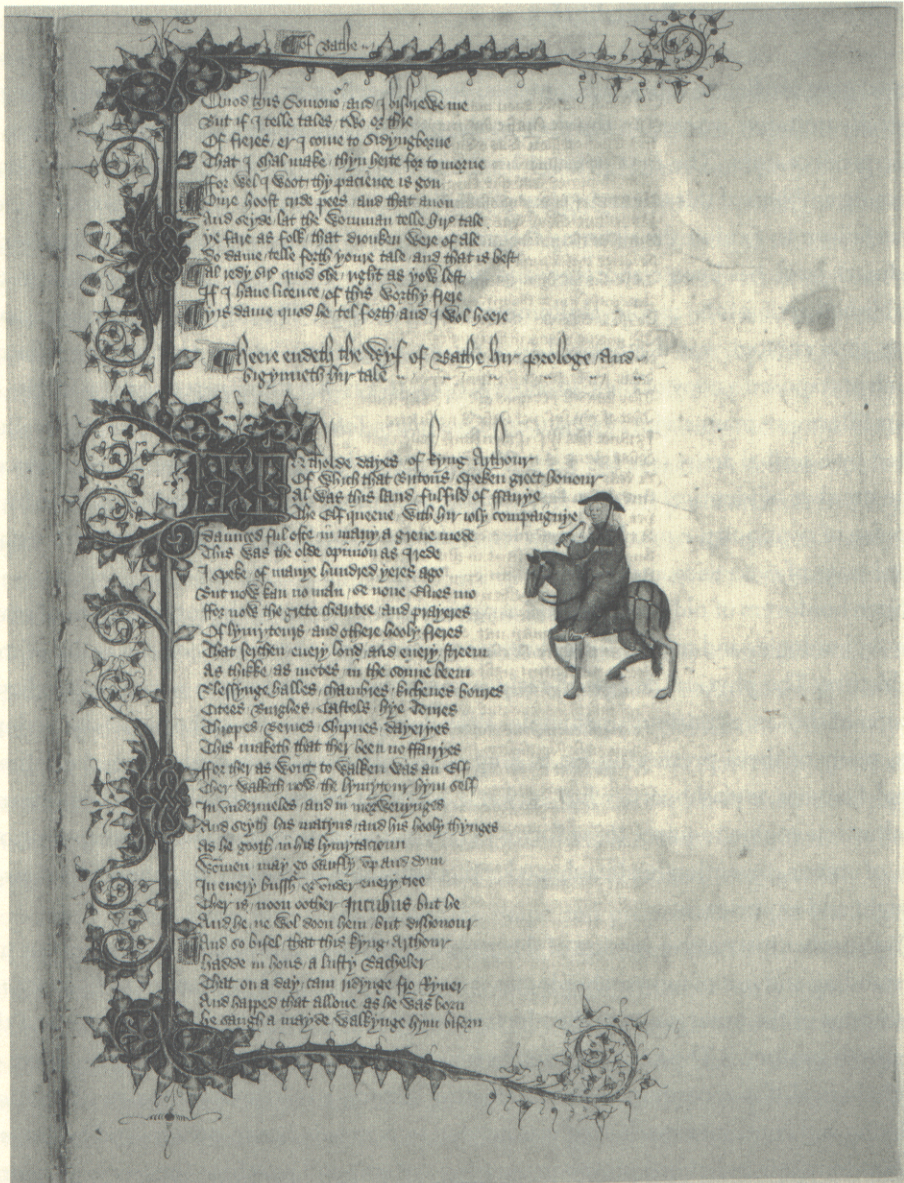 Of Bathe
Quod this Somono2 and I bishrewe me
But if I telle tales two or thre
Of freres er I come to Sidyngborne
That I shal make thyn herte for to morne
ffor wel I woot thy pacience is gon
Oure hoost cride pees and that anon
And seyde lat the womman telle hir tale
ye fare as folk that dronken were of ale
do dame telle forth youre tale and that is best
Al redy sire quod she right as yow lest
If I have licence of this worthy frere
yis dame quod he tel forth and I wol heere
Heere endeth the wyf of Bathe hir prologe and
bigynneth hir tale
In tholde dayes of kyng Arthour
Of which that Britons speken greet honour
Al was this land fulfild of ffairye
The Elf queene with hir ioly compaignye
daunced ful ofte in many a grene mede
This was the olde opinion as I rede
I speke of manye hundred yeres ago
But now kan no man se none Elues mo
ffor now the grete charitee and prayeres
Of lymytours and othere hooly freres
That serchen every lond and every streem
As thikke as motes in the sonne beem
Blessynge halles chambres kichenes boures
Citees Burghes Castels hye Toures
Thropes Bernes Shipnes dayeryes
This maketh that ther been no ffairyes
ffor ther as wont to walken was an Elf
Ther walketh now the lymytour hym self
In vndermeles and in morwenynges
And seyth his matyns and his hooly thynges
As he gooth in his lymytacioun
Wommen may go saufly vp and doun
In every bussh or vnder every tree
Ther is noon oother Incubus but he
And he ne wol doon hem but dishonour
And so bifel that this kyng Arthour
hadde in hous a lusty Bacheler
That on a day cam ridynge fro Ryuer
And happed that allone as he was born
he saugh a mayde walkynge hym biforn